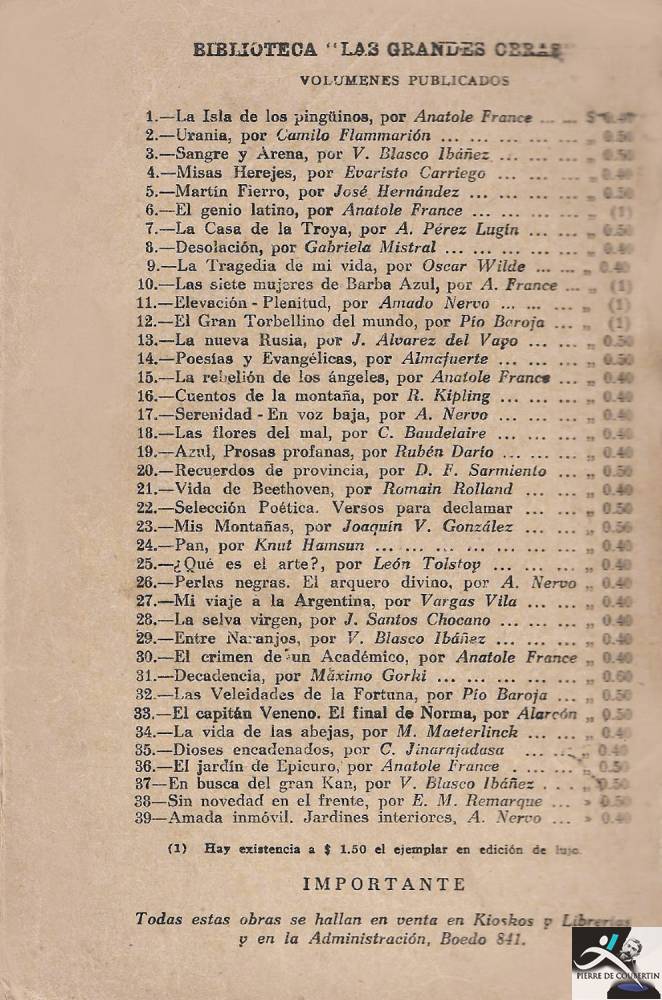 BIBLIOTECA "LAS GRANDES OBRAS"
VOLUMENES PUBLICADOS
1.—La Isla de los pingüinos, por Anatole France ... ... $ 0.40
2.—Urania, por Camilo Flammarión ... ... ... ... „ 0.50
3.—Sangre y Arena, por V. Blasco Ibáñez ... ... ... „ 0.50
4.—Misas Herejes, por Evaristo Carriego ... ... ... „ 0.40
5.—Martín Fierro, por José Hernández ... ... ... ... „ 0.50
6.—El genio latino, por Anatole France ... ... ... „ (1)
7.—La Casa de la Troya, por A. Pérez Lugín ... ... „ 0.50
8.—Desolación, por Gabriela Mistral ... ... ... ... „ 0.40
9.—La Tragedia de mi vida, por Oscar Wilde ... ... „ 0.40
10.—Las siete mujeres de Barba Azul, por A. France ... „ (1)
11.—Elevación - Plenitud, por Amado Nervo ... ... ... „ (1)
12.—El Gran Torbellino del mundo, por Pío Baroja ... „ (1)
13.—La nueva Rusia, por J. Alvarez del Vayo ... ... „ 0.50
14.—Poesías y Evangélicas, por Almafuerte ... ... ... „ 0.50
15.—La rebelión de los ángeles, por Anatole France ... „ 0.40
16.—Cuentos de la montaña, por R. Kipling ... ... ... „ 0.40
17.—Serenidad - En voz baja, por A. Nervo ... ... ... „ 0.40
18.—Las flores del mal, por C. Baudelaire ... ... ... „ 0.40
19.—Azul, Prosas profanas, por Rubén Darío ... ... ... „ 0.40
20.—Recuerdos de provincia, por D. F. Sarmiento ... „ 0.50
21.—Vida de Beethoven, por Romain Rolland ... ... „ 0.40
22.—Selección Poética. Versos para declamar ... ... „ 0.50
23.—Mis Montañas, por Joaquín V. González ... ... „ 0.50
24.—Pan, por Knut Hamsun ... ... ... ... ... ... „ 0.40
25.—¿Qué es el arte?, por León Tolstoy ... ... ... „ 0.40
26.—Perlas negras. El arquero divino, por A. Nervo „ 0.40
27.—Mi viaje a la Argentina, por Vargas Vila ... ... „ 0.40
28.—La selva virgen, por J. Santos Chocano ... ... „ 0.40
29.—Entre Naranjos, por V. Blasco Ibáñez ... ... ... „ 0.40
30.—El crimen de un Académico, por Anatole France „ 0.40
31.—Decadencia, por Máximo Gorki ... ... ... ... „ 0.60
32.—Las Veleidades de la Fortuna, por Pío Baroja ... „ 0.50
33.—El capitán Veneno. El final de Norma, por Alarcón „ 0.50
34.—La vida de las abejas, por M. Maeterlinck ... ... „ 0.40
35.—Dioses encadenados, por C. Jinarajadasa ... ... „ 0.40
36.—El jardín de Epicuro, por Anatole France . ... ... „ 0.50
37—En busca del gran Kan, por V. Blasco Ibáñez . . . „ 0.50
38—Sin novedad en el frente, por E. M. Remarque ... » 0.50
39—Amada inmóvil. Jardines interiores, A. Nervo ... » 0.40
(1) Hay existencia a $ 1.50 el ejemplar en edición de lujo.
IMPORTANTE
Todas estas obras se hallan en venta en Kioskos y Librerías
y en la Administración, Boedo 841.
PIERRE DE COUBERTIN